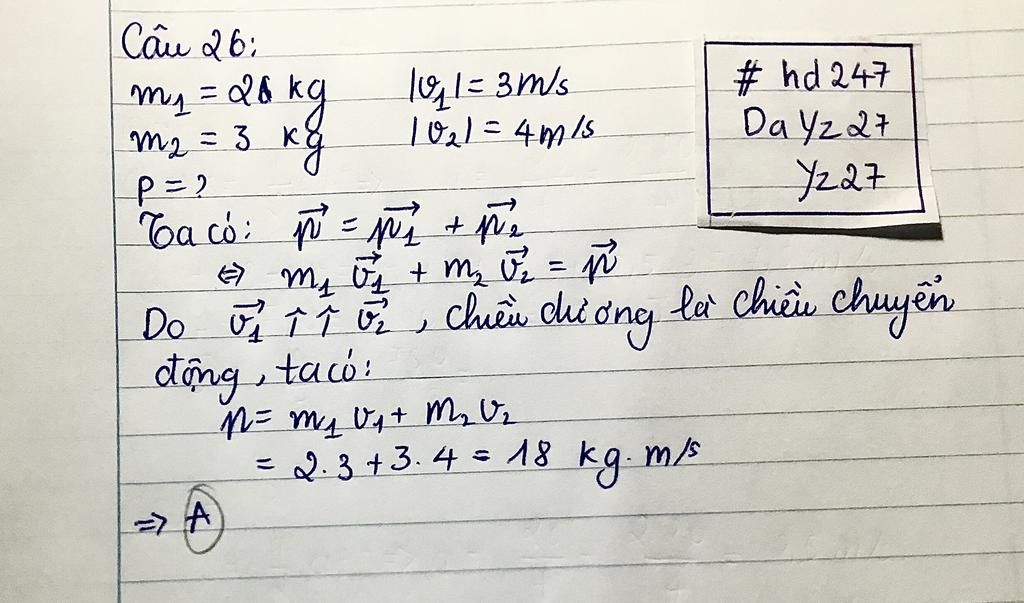 Câu 26:
m₁ = 2 kg |v₁| = 3m/s
m₂ = 3 kg |v₂| = 4m/s
P = ?
Ta có: p⃗ = p⃗₁ + p⃗₂
⇔ m₁ v⃗₁ + m₂ v⃗₂ = p⃗
Do v⃗₁ ↑↑ v⃗₂, chiều dương là chiều chuyển
động, ta có:
p = m₁ v₁ + m₂ v₂
= 2.3 + 3.4 = 18 kg.m/s
⇒ A
# hd247
Da Yz27
Yz27